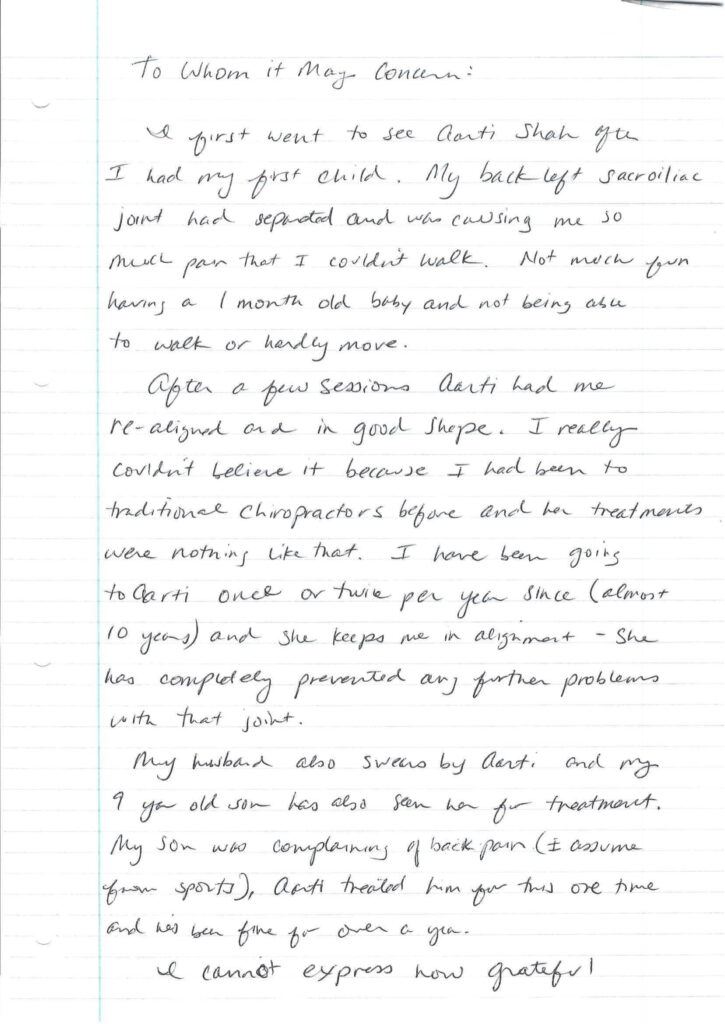 To Whom it May Concern:
I first went to see Aarti Shah after
I had my first child. My back left sacroiliac
joint had separated and was causing me so
much pain that I couldn't walk. Not much fun
having a 1 month old baby and not being able
to walk or hardly move.
After a few sessions Aarti had me
re-aligned and in good shape. I really
couldn't believe it because I had been to
traditional chiropractors before and her treatments
were nothing like that. I have been going
to Aarti once or twice per year since (almost
10 years) and she keeps me in alignment - She
has completely prevented any further problems
with that joint.
My husband also swears by Aarti and my
9 year old son has also seen her for treatment.
My son was complaining of back pain (I assume
from sports), Aarti treated him for this one time
and he's been fine for over a year.
I cannot express how grateful